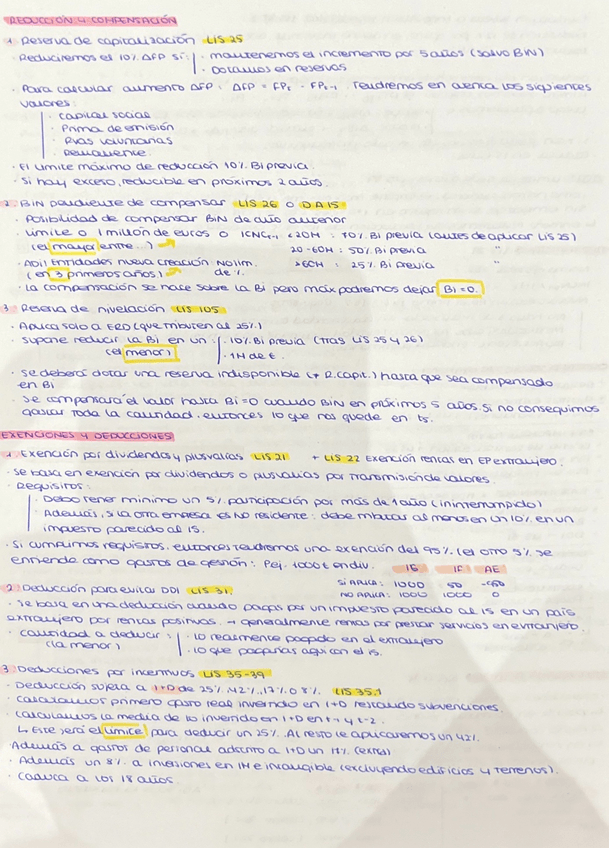 REDUCCIÓN Y COMPENSACIÓN
1 Reserva de capitalización LIS 25
· Reduciremos el 10% ΔFP si: | · mantenemos el incremento por 5 años (salvo BIN)
· Dotamos en reservas
· Para calcular aumento ΔFP: ΔFP = FPt - FPt-1. Tendremos en cuenta los siguientes
valores:
· Capital social
· Prima de emisión
· Rvas voluntarias
· Remanente
· El límite máximo de reducción 10% Bi previa.
· Si hay exceso, reducible en próximos 2 años.
2 BIN pendiente de compensar LIS 26 o DA 15
· Posibilidad de compensar BIN de año anterior
· Límite o 1 millón de euros o ICNCt-1 <20M: 70% Bi previa (antes de aplicar LIS 25)
(el mayor entre...) → 20-60M: 50% Bi previa "
· ADI! Entidades nueva creación NO lím. >60M: 25% Bi previa "
(en 3 primeros años) → de %.
· La compensación se hace sobre la Bi pero máx podremos dejar Bi=0.
3 Reserva de nivelación LIS 105
· Aplica solo a ERD (que tributen al 25%)
· Supone reducir la Bi en un: | · 10% Bi previa (tras LIS 25 y 26)
(el menor) | · 1M de €.
· Se deberá dotar una reserva indisponible (≠ R.capit.) hasta que sea compensado
en Bi
· Se compensará el valor hasta Bi=0 cuando BIN en próximos 5 años. Si no conseguimos
gastar toda la cantidad, entonces lo que nos quede en t5.
EXENCIONES Y DEDUCCIONES
1 Exención por dividendos y plusvalías LIS 21 + LIS 22 Exención rentas en EP extranjero.
· Se basa en exención por dividendos o plusvalías por transmisión de valores
· Requisitos:
· Debo tener mínimo un 5% participación por más de 1 año (ininterrumpido)
· Además, si la otra empresa es no residente: debe tributar al menos en un 10% en un
impuesto parecido al IS.
· Si cumplimos requisitos, entonces tendremos una exención del 95%. (el otro 5% se
entiende como gastos de gestión: Pej. 1000€ en div. IB IF AE
SI APLICA: 1000 50 -950
NO APLICA: 1000 1000 0
2 Deducción para evitar DDI LIS 31.
· Se basa en una deducción cuando pagas por un impuesto parecido al IS en un país
extranjero por rentas positivas. → generalmente rentas por prestar servicios en extranjero.
· Cantidad a deducir: | · lo realmente pagado en el extranjero
(la menor) | · lo que pagarías aquí con el IS.
3 Deducciones por incentivos LIS 35-39
· Deducción sujeta a I+D de 25%, 42%, 17% o 8% LIS 35.1
· Calculamos primero gasto real invertido en I+D restando subvenciones.
· Calculamos la media de lo invertido en I+D en t-1 y t-2.
↳ Este será el límite para deducir un 25%. Al resto le aplicaremos un 42%.
Además a gastos de personal adscrito a I+D un 17% (extra)
· Además un 8% a inversiones en IM e intangible (excluyendo edificios y terrenos).
· Caduca a los 18 años.